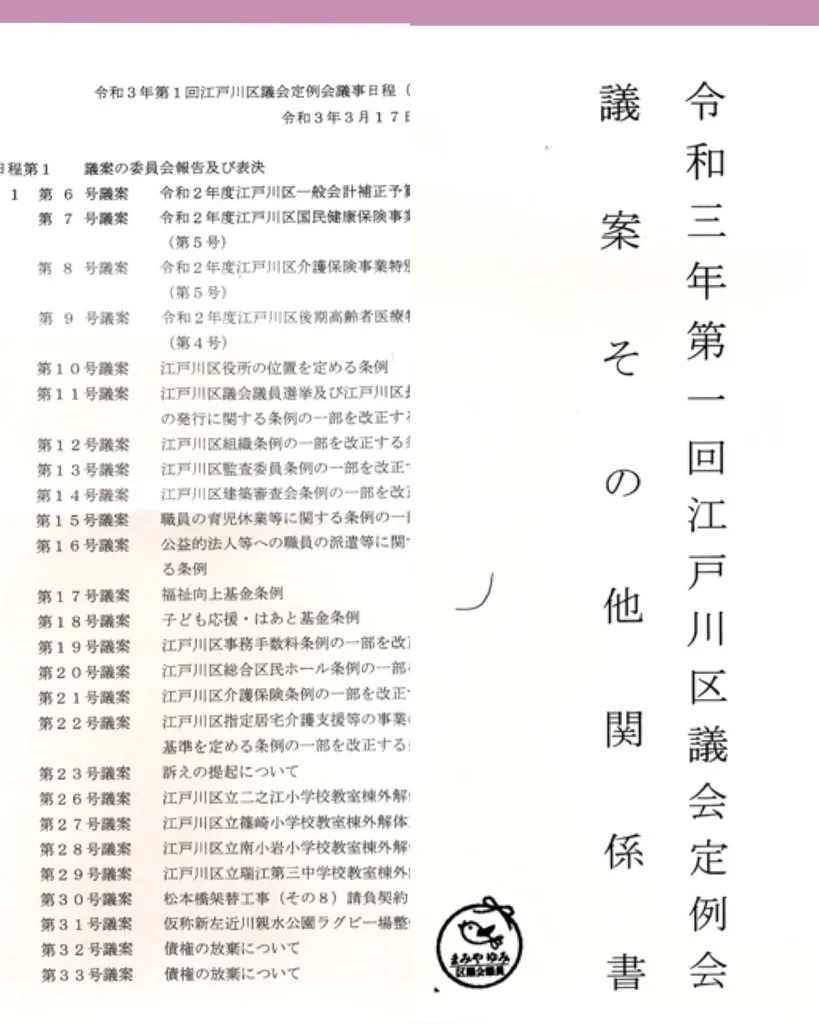 令和３年第１回江戸川区議会定例会議事日程（
令和３年３月１７日
日程第１　議案の委員会報告及び表決
１ 第 ６ 号議案　令和２年度江戸川区一般会計補正予算
第 ７ 号議案　令和２年度江戸川区国民健康保険事業
（第５号）
第 ８ 号議案　令和２年度江戸川区介護保険事業特別
（第５号）
第 ９ 号議案　令和２年度江戸川区後期高齢者医療特
（第４号）
第１０号議案　江戸川区役所の位置を定める条例
第１１号議案　江戸川区議会議員選挙及び江戸川区長
の発行に関する条例の一部を改正する
第１２号議案　江戸川区組織条例の一部を改正する条
第１３号議案　江戸川区監査委員条例の一部を改正す
第１４号議案　江戸川区建築審査会条例の一部を改正
第１５号議案　職員の育児休業等に関する条例の一部
第１６号議案　公益的法人等への職員の派遣等に関す
る条例
第１７号議案　福祉向上基金条例
第１８号議案　子ども応援・はあと基金条例
第１９号議案　江戸川区事務手数料条例の一部を改正
第２０号議案　江戸川区総合区民ホール条例の一部を
第２１号議案　江戸川区介護保険条例の一部を改正す
第２２号議案　江戸川区指定居宅介護支援等の事業の
基準を定める条例の一部を改正する条
第２３号議案　訴えの提起について
第２６号議案　江戸川区立二之江小学校教室棟外解体
第２７号議案　江戸川区立篠崎小学校教室棟外解体工
第２８号議案　江戸川区立南小岩小学校教室棟外解体
第２９号議案　江戸川区立瑞江第三中学校教室棟外解
第３０号議案　松本橋架替工事（その８）請負契約
第３１号議案　仮称新左近川親水公園ラグビー場整備
第３２号議案　債権の放棄について
第３３号議案　債権の放棄について
令和三年第一回江戸川区議会定例会
議案その他関係書
まみやゆみ
区議会議員